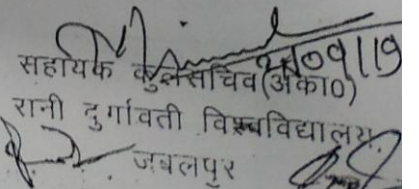 09/19
सहायक कुलसचिव(अका0)
रानी दुर्गावती विश्वविद्यालय
जबलपुर